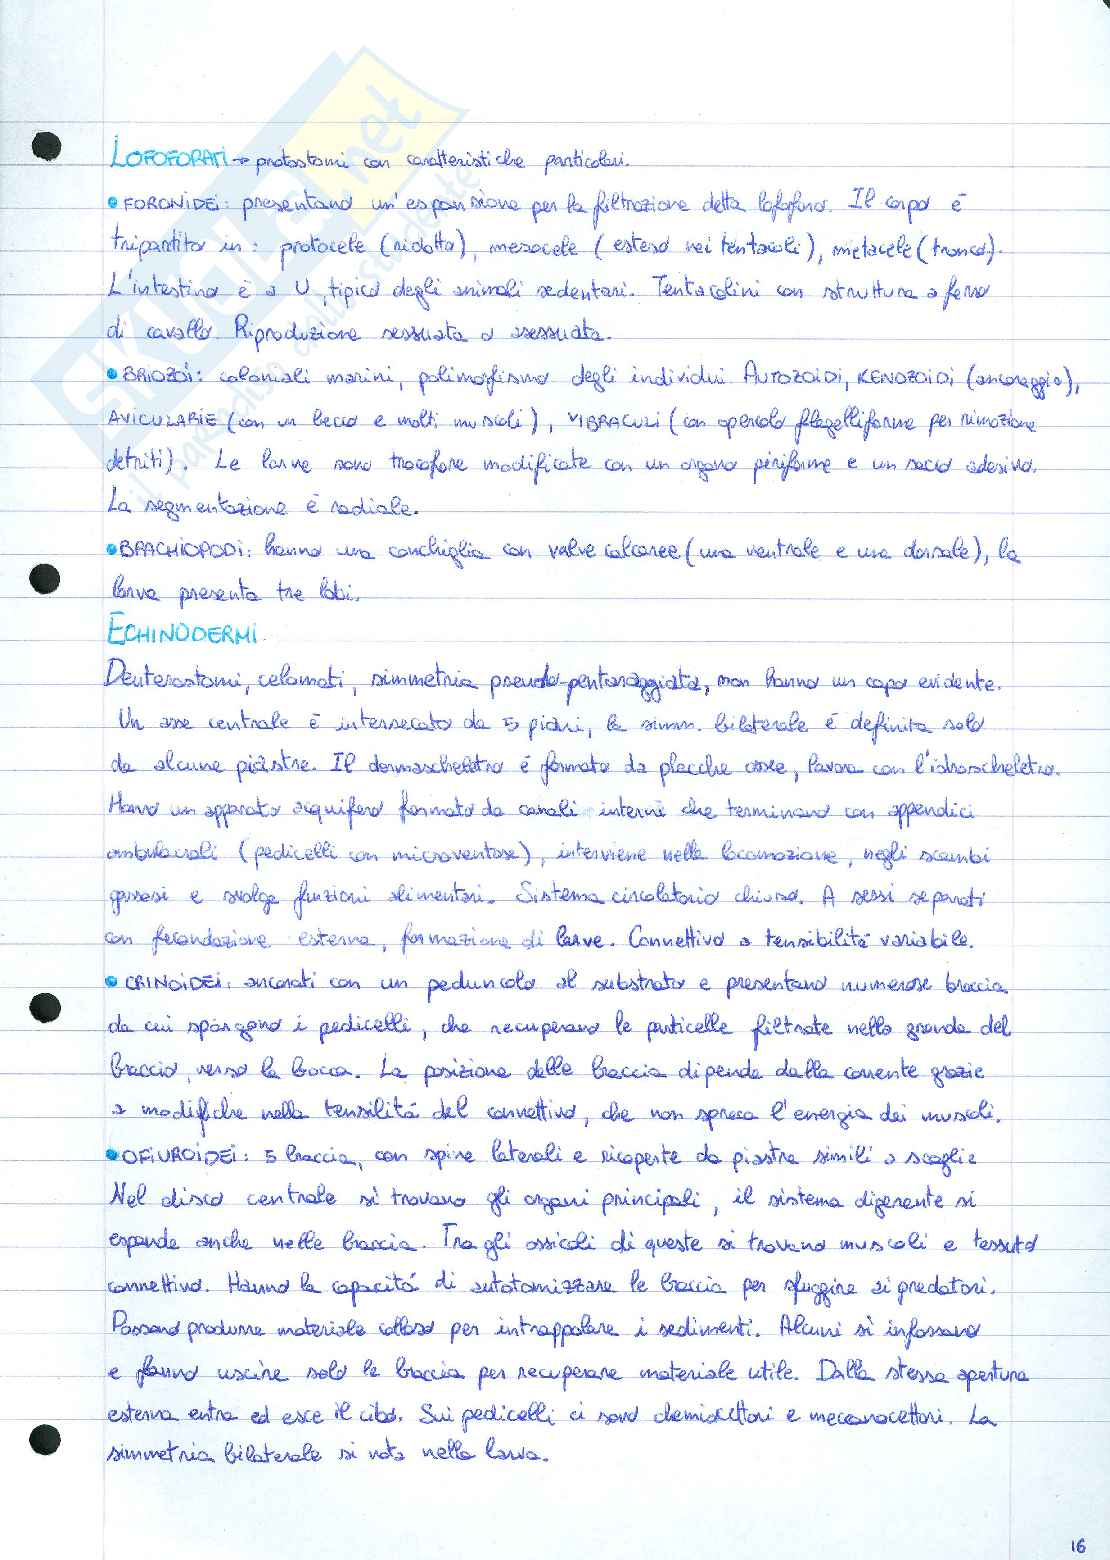 LOFOFORATI → protostomi con caratteristiche particolari.
• FORONIDEI: presentano un'espansione per la filtrazione detta lofoforo. Il corpo é
tripartito in: protocele (ridotta), mesocele (esteso nei tentacoli), metacele (tronco).
L'intestino é a U, tipico degli animali sedentari. Tentacolini con struttura a ferro
di cavallo. Riproduzione sessuata o asessuata.
• BRIOZOI: coloniali marini, polimorfismo degli individui AUTOZOIDI, KENOZOIDI (ancoraggio),
AVICULARIE (con un becco e molti muscoli), VIBRACULI (con opercolo flagelliforme per rimozione
detriti). Le larve sono trocofore modificate con un organo piriforme e un sacco adesivo.
La segmentazione é radiale.
• BRACHIOPODI: hanno una conchiglia con valve calcaree (una ventrale e una dorsale), la
larva presenta tre lobi.
ECHINODERMI
Deuterostomi, celomati, simmetria pseudo-pentaraggiata, non hanno un capo evidente.
Un asse centrale é intersecato da 5 piani, la simm. bilaterale é definita solo
da alcune piastre. Il dermascheletro é formato da placche ossee, lavora con l'idroscheletro.
Hanno un apparato acquifero formato da canali interni che terminano con appendici
ambulacrali (pedicelli con microventose), interviene nella locomozione, negli scambi
gassosi e svolge funzioni alimentari. Sistema circolatorio chiuso. A sessi separati
con fecondazione esterna, formazione di larve. Connettivo a tensibilitá variabile.
• CRINOIDEI: ancorati con un peduncolo al substrato e presentano numerose braccia
da cui sporgono i pedicelli, che recuperano le particelle filtrate nella gronda del
braccio, verso la bocca. La posizione delle braccia dipende dalla corrente grazie
a modifiche nella tensilitá del connettivo, che non spreca l'energia dei muscoli.
• OFIUROIDEI: 5 braccia, con spine laterali e ricoperte da piastre simili a scaglie
Nel disco centrale si trovano gli organi principali, il sistema digerente si
espande anche nelle braccia. Tra gli ossicoli di queste si trovano muscoli e tessuto
connettivo. Hanno la capacitá di autotomizzare le braccia per sfuggire ai predatori.
Possono produrre materiale colloso per intrappolare i sedimenti. Alcuni si infossano
e fanno uscire solo le braccia per recuperare materiale utile. Dalla stessa apertura
esterna entra ed esce il cibo. Sui pedicelli ci sono chemiocettori e meccanocettori. La
simmetria bilaterale si nota nella larva.
16
SKUOLA.net